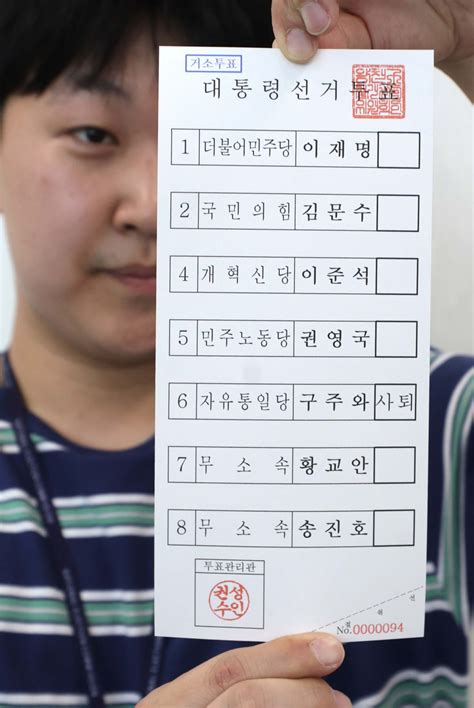 거소투표
대통령선거투표
1 더불어민주당 이재명
2 국민의힘 김문수
4 개혁신당 이준석
5 민주노동당 권영국
6 자유통일당 구주와 사퇴
7 무소속 황교안
8 무소속 송진호
투표관리관
권성
수인
절 취 선
No.0000094